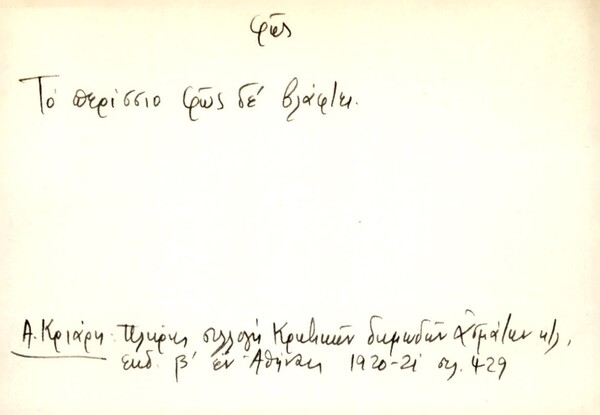 φῶς
Τό περίσσιο φῶς δέ βλάφτει.
Α. Κριάρη: Πλήρης συλλογή Κρητικῶν δημωδῶν ἀσμάτων κτλ,
ἐκδ. β' ἐν Ἀθήναις 1920-21 σελ. 429